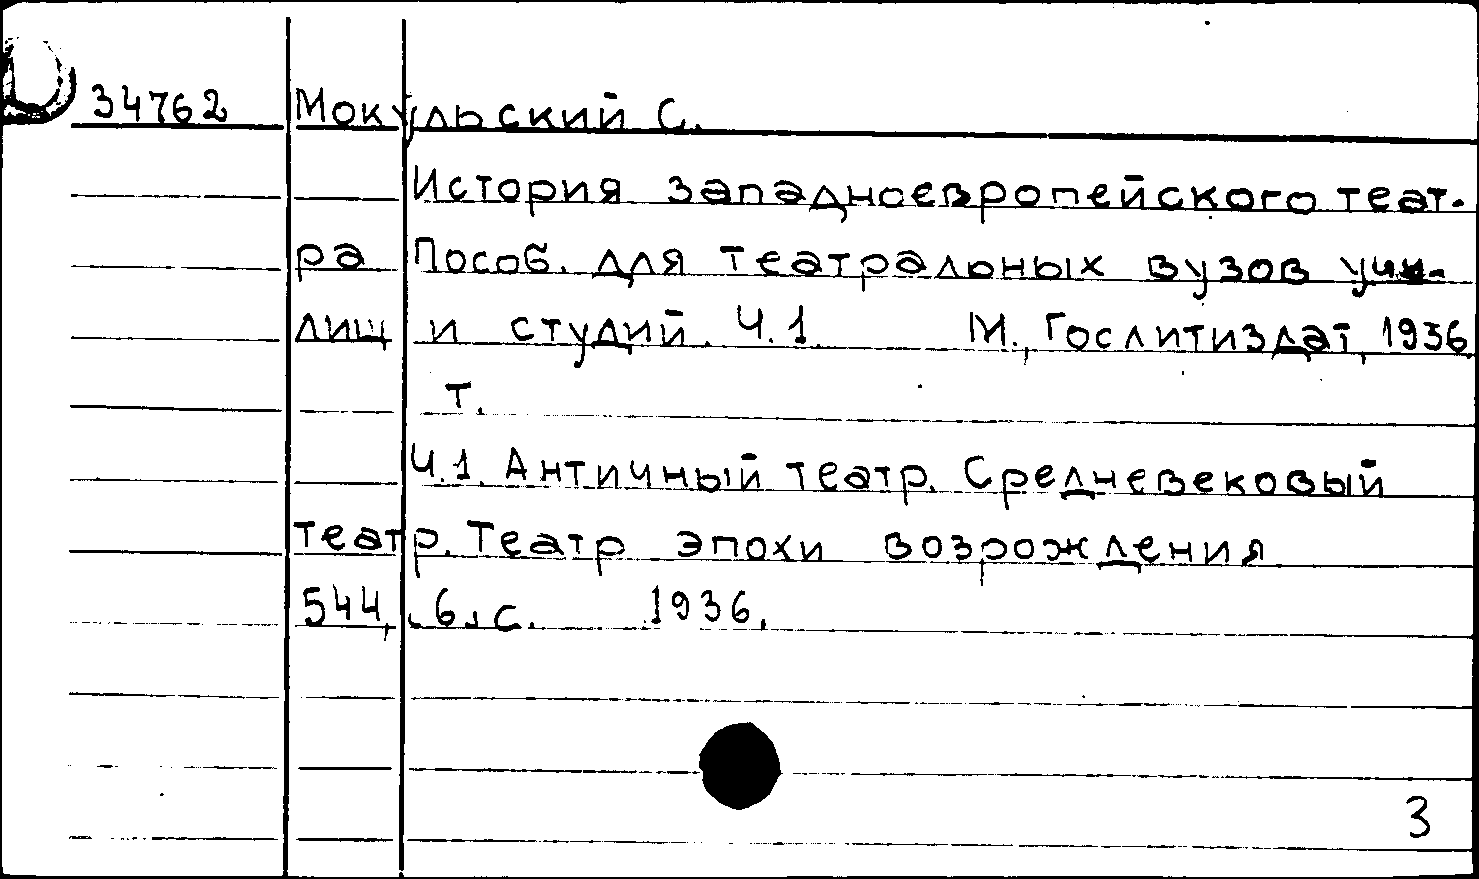 34762 Мокульский С.
История западноевропейского теат-
ра Пособ. для театральных вузов учи-
лищ и студий. Ч.1 М., Гослитиздат, 1936
т.
Ч.1. Античный театр. Средневековый
театр. Театр эпохи возрождения
544, 6.с. 1936.
3